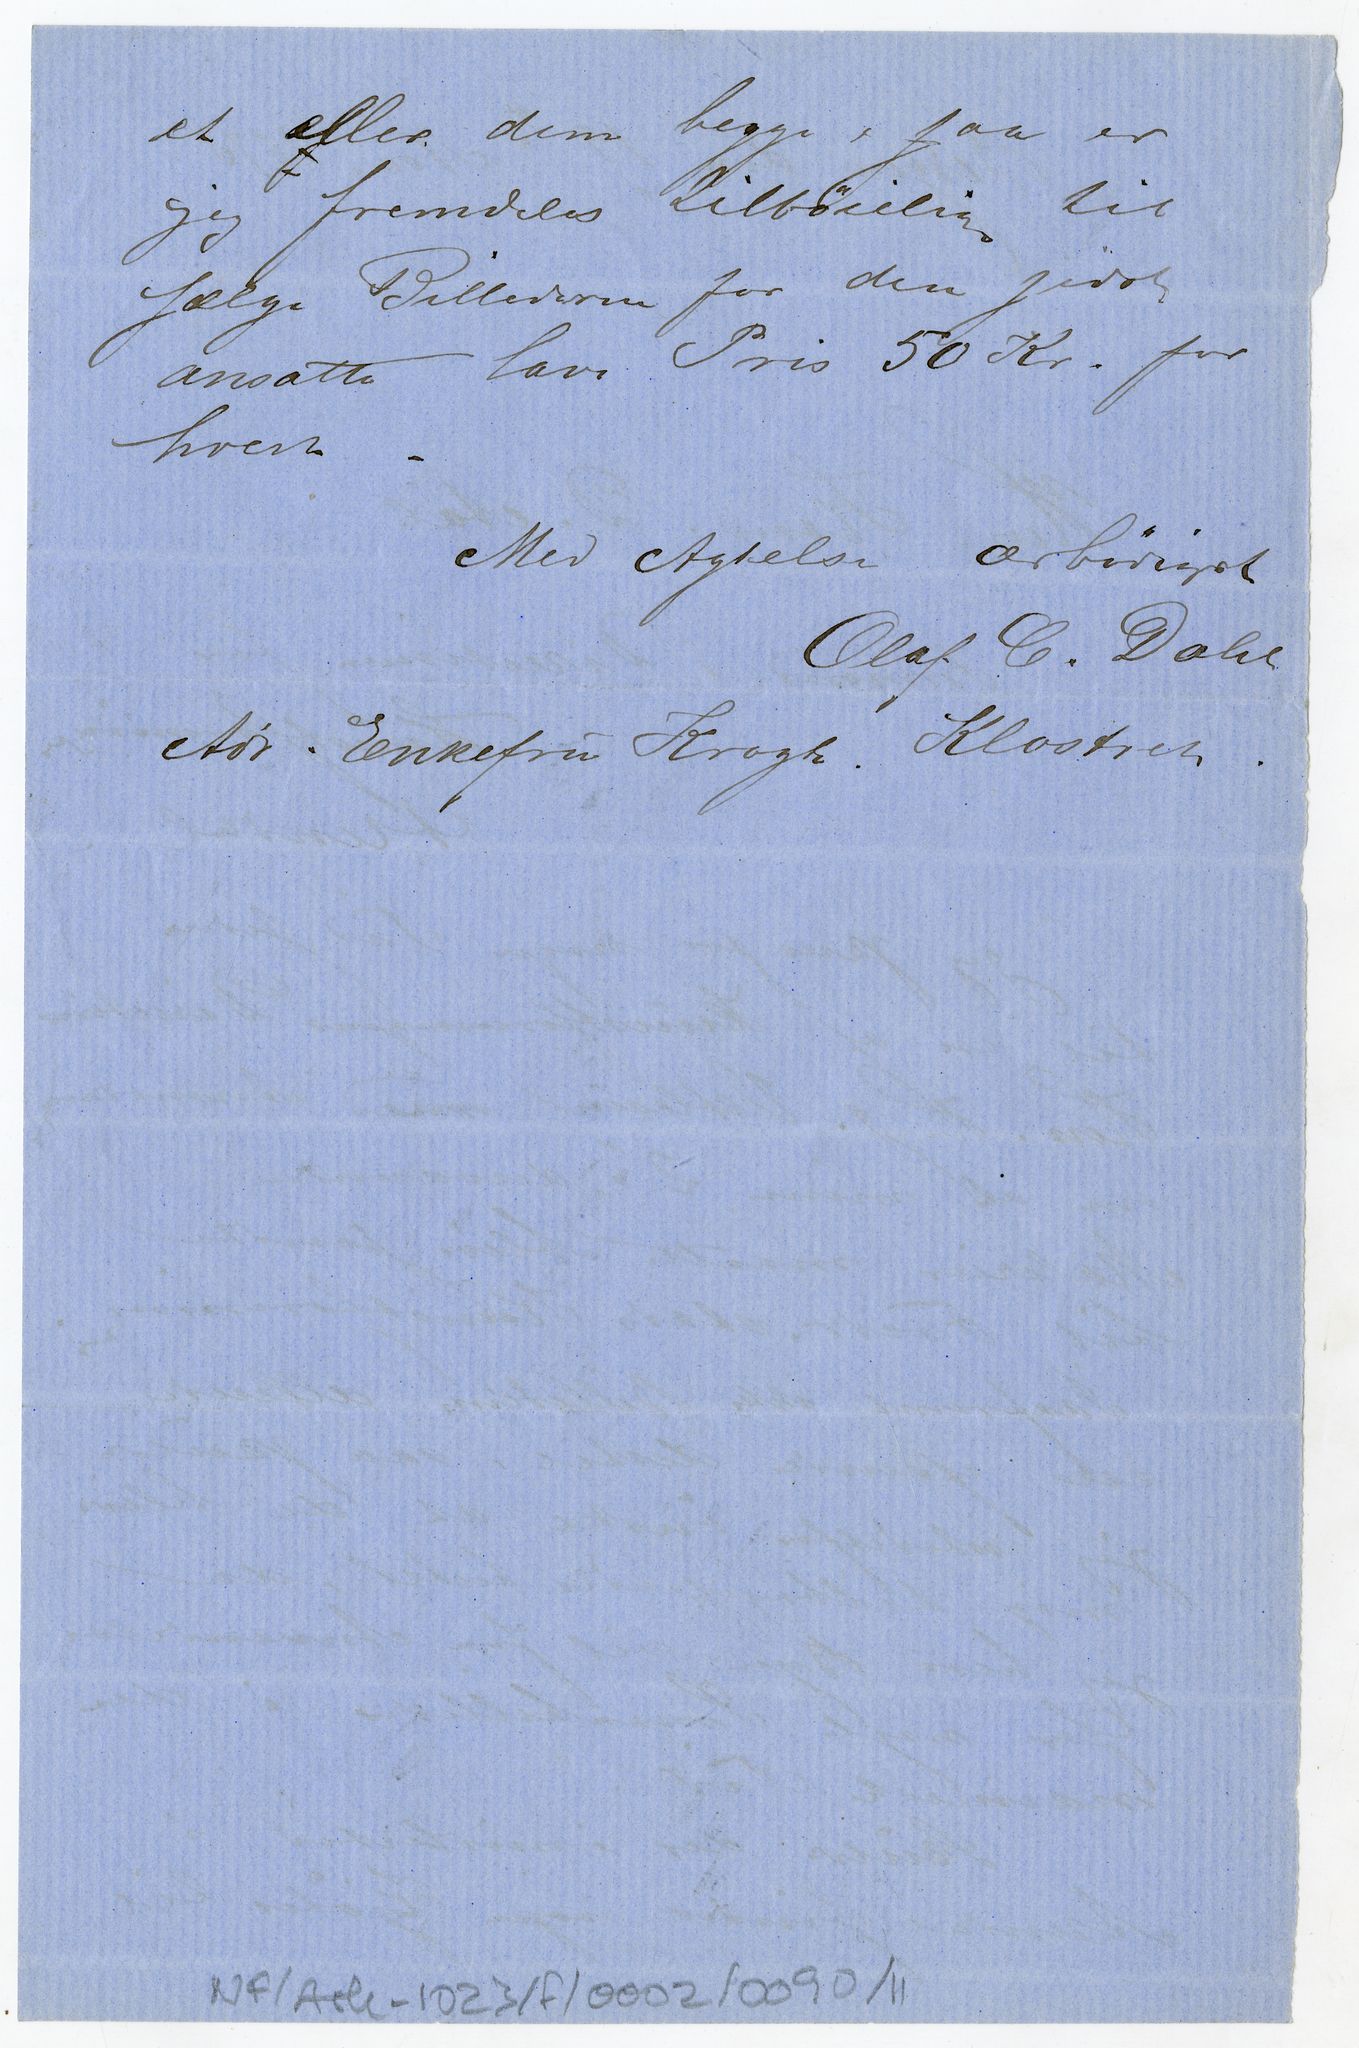 et eller dem begge, saa er
jeg fremdeles tilböielig til
sælge Billederne for den sidst
ansatte lave Pris 50 Kr. for
hvert.
Med Agtelse ærbödigst
Olaf C. Dahl
Adr. Enkefru Krogh. Klostret.
NF/Ark-1023/F/0002/0090/11